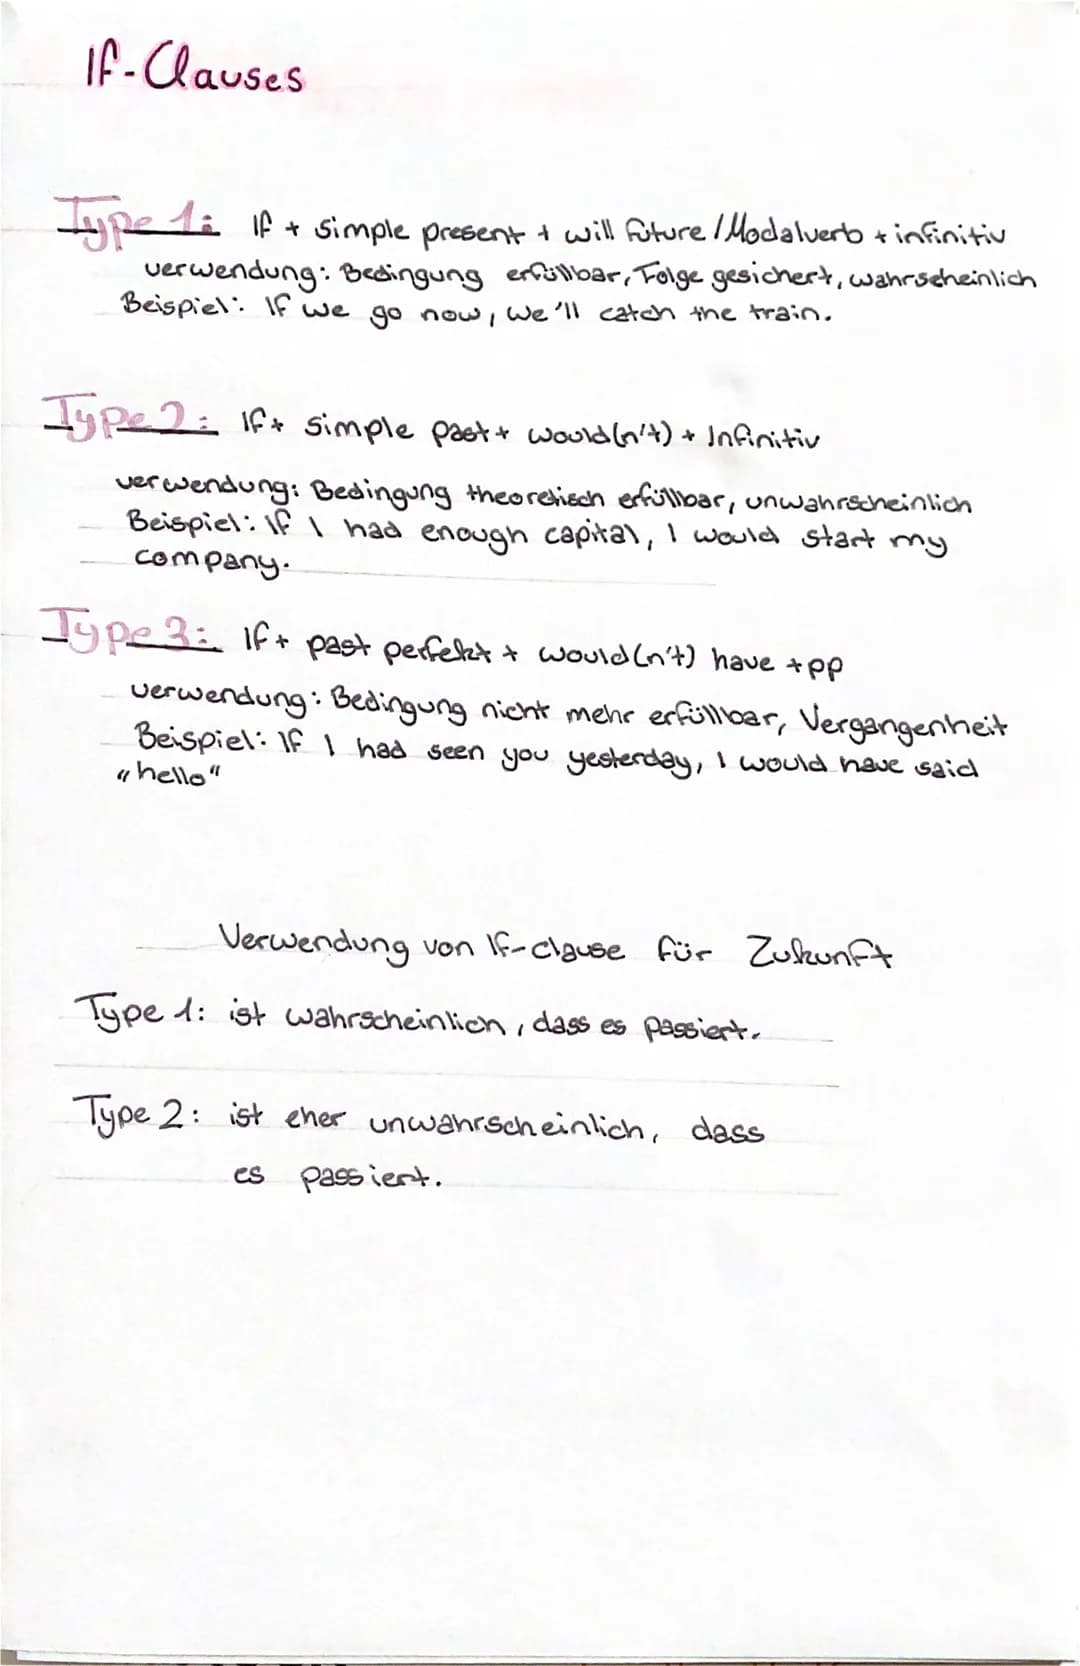 If-Clauses
Type 1: If + simple present + will future / Modalverb + infinitiv
verwendung: Bedingung erfüllbar, Folge gesichert, wahrscheinlich
Beispiel: If we go now, we'll catch the train.
Type 2: If + simple past + would(n't) + Infinitiv
verwendung: Bedingung theoretisch erfüllbar, unwahrscheinlich
Beispiel: If I had enough capital, I would start my
company.
Type 3: If + past perfekt + would(n't) have + pp
verwendung: Bedingung nicht mehr erfüllbar, Vergangenheit
Beispiel: If I had seen you yesterday, I would have said
"hello"
Verwendung von If-clause für Zukunft
Type 1: ist wahrscheinlich, dass es passiert.
Type 2: ist eher unwahrscheinlich, dass
es passiert.